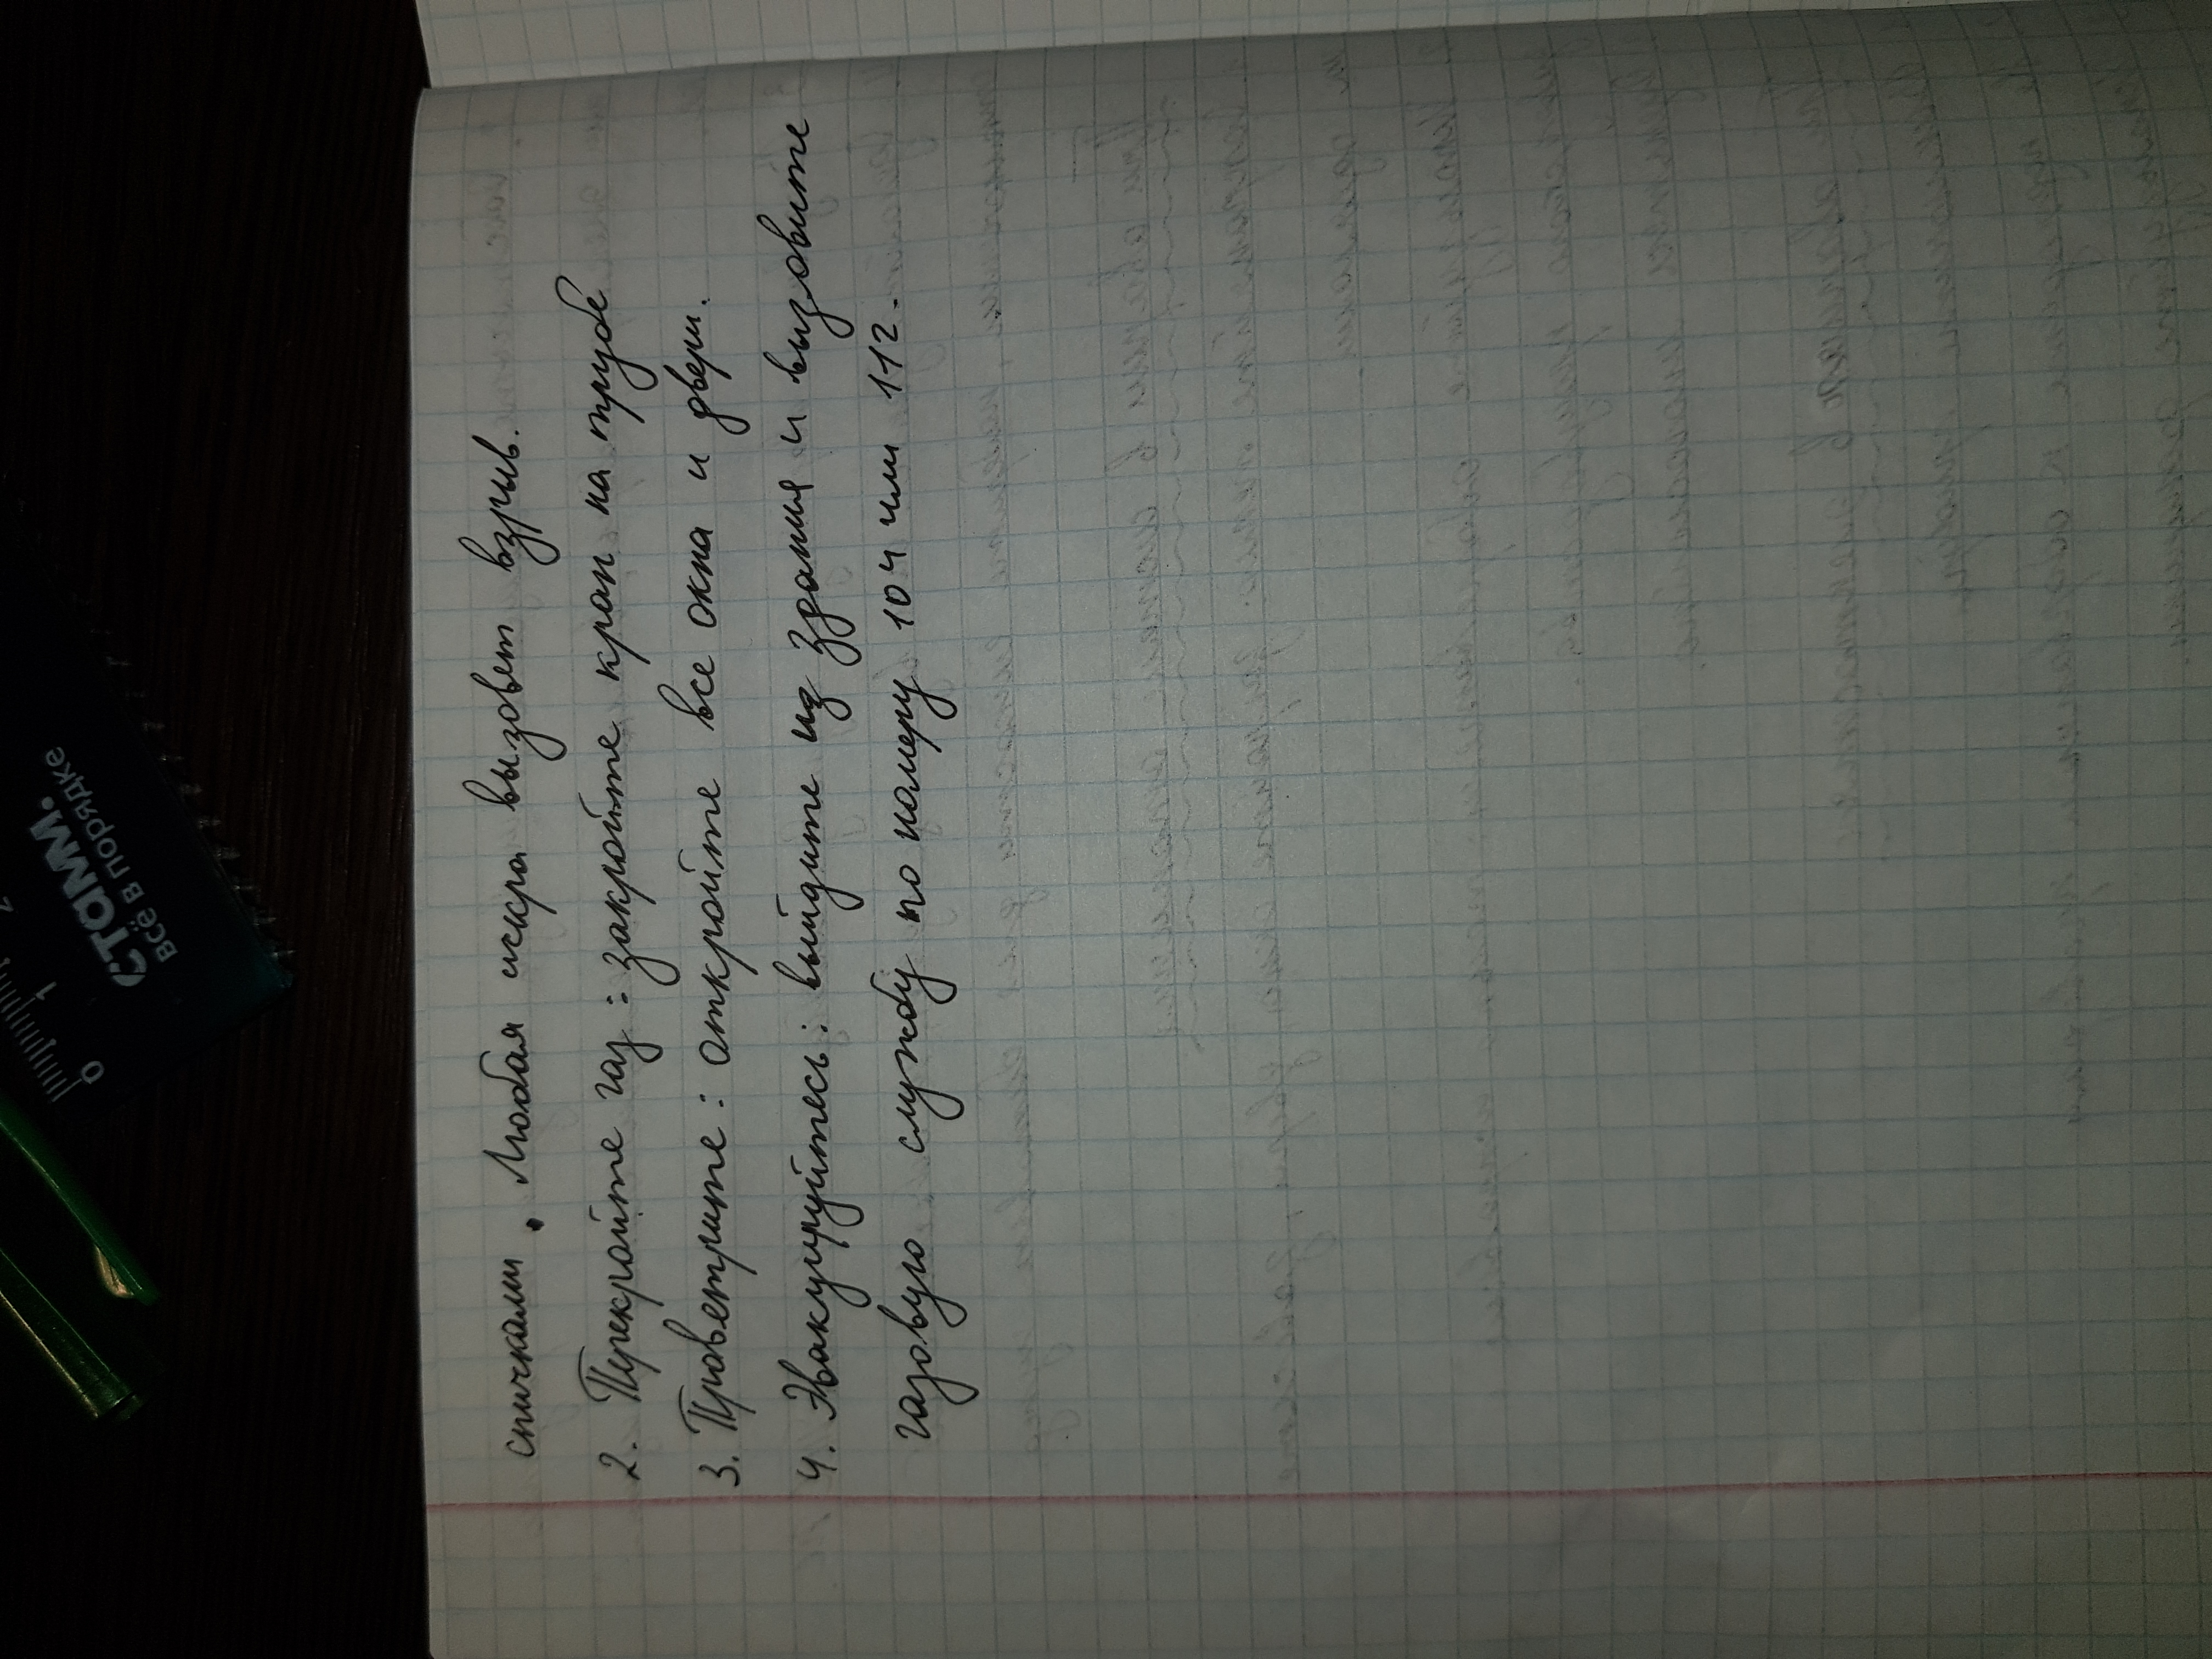 спичками. Любая искра вызовет взрыв.
2. Перекройте газ: закройте кран на трубе
3. Проветрите: откройте все окна и двери.
4. Эвакуируйтесь: выйдите из здания и вызовите
газовую службу по номеру 104 или 112.
СТАММ.
ВСЁ В ПОРЯДКЕ
0 1 2